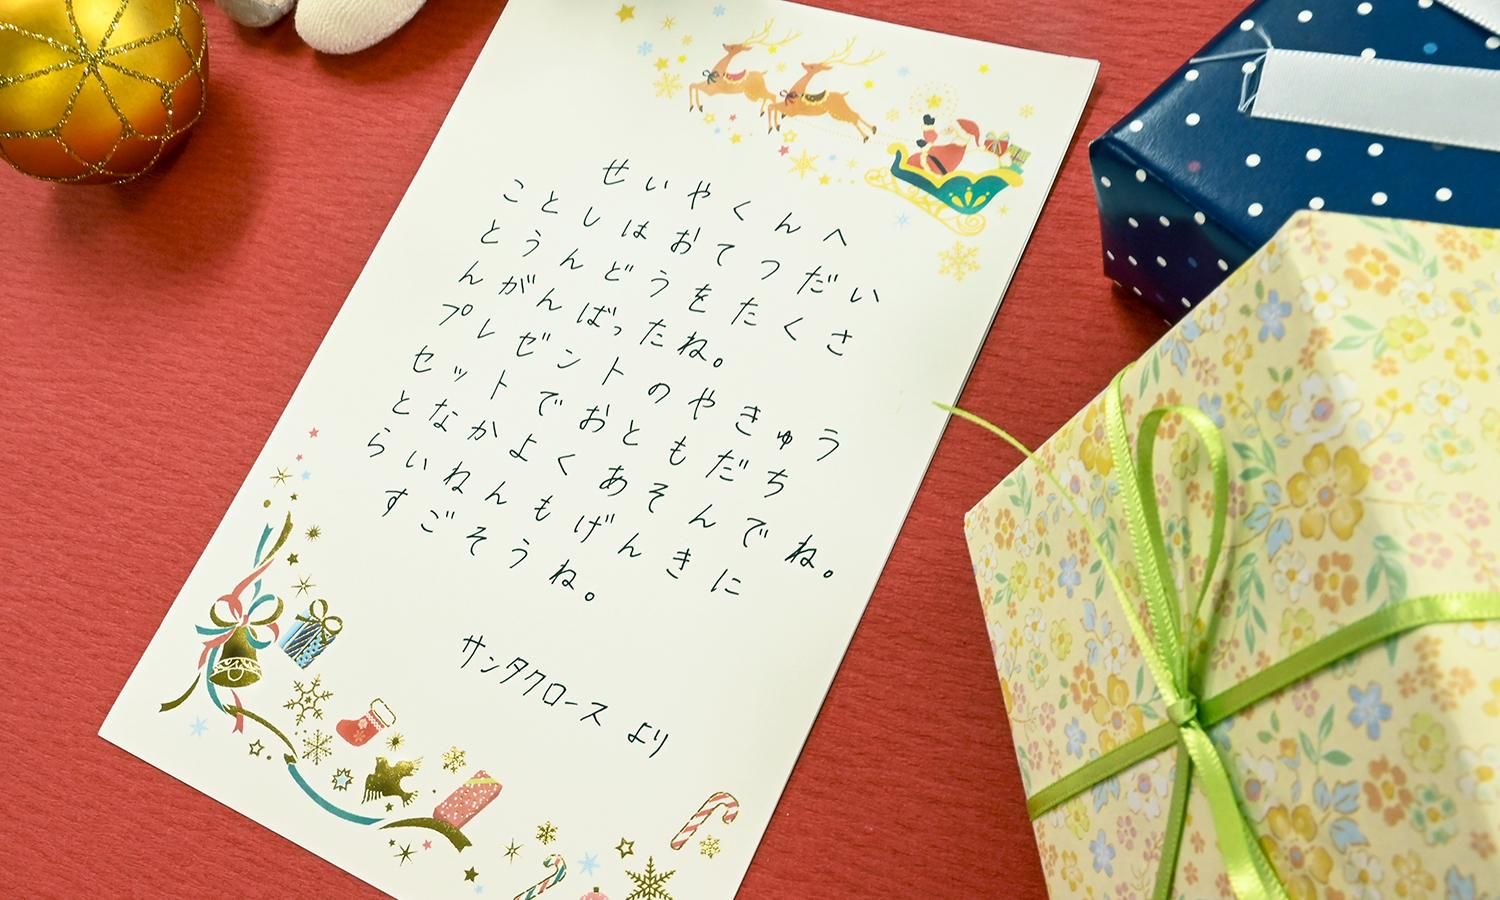 せいやくんへ
ことしはおてつだい
とうんどうをたくさ
んがんばったね。
プレゼントのやきゅう
セットでおともだち
となかよくあそんでね。
らいねんもげんきに
すごそうね。
サンタクロースより